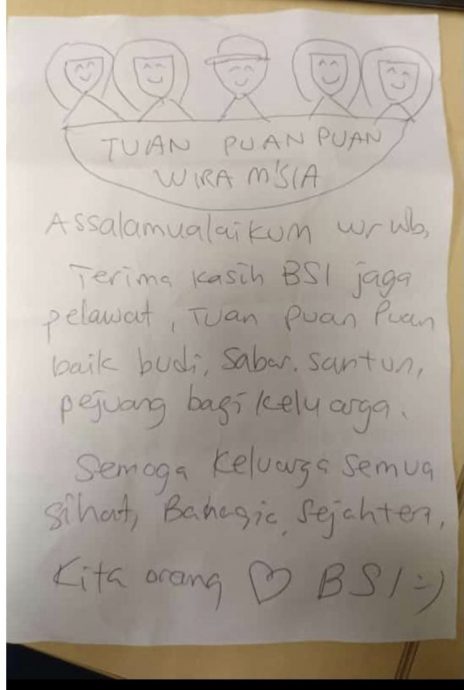 TUAN PUAN PUAN
WIRA M'SIA
Assalamualaikum wr wb,
Terima kasih BSI jaga
pelawat, Tuan puan Puan
baik budi, sabar. santun,
pejuang bagi keluarga.
Semoga keluarga semua
sihat, Bahagia, sejahtera,
Kita orang ♡ BSI :-)